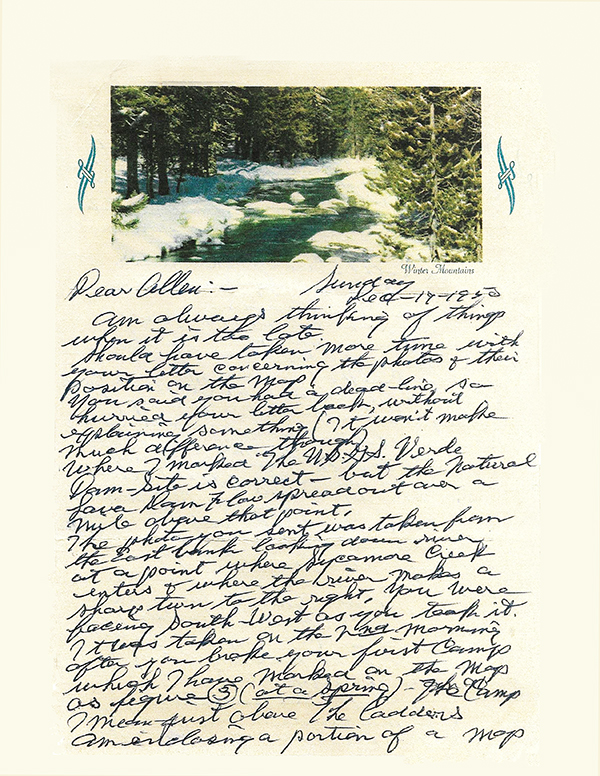 Winter Mountains
Dear Allen:- Sunday
Dec-17-1950
Am always thinking of things
when it is too late.
Should have taken more time with
your letter concerning the photos & their
position on the map.
You said you had a dead-line, so
hurried your letter back, without
explaining something (It won't make
much difference though)
Where I marked The U.S.G.S. Verde
Dam-Site is correct - but the Natural
Lava Dam Flow spread out over a
mile above that point.
The photo you sent was taken from
the East bank looking down river
at a point where Sycamore Creek
enters & where the river makes a
sharp turn to the right. You were
facing South-West as you took it.
It was taken on the 2nd morning
after you broke your first Camp
which I have marked on the Map
as figure (3) (at a spring) - The Camp
I mean just above The Ladders
Am enclosing a portion of a map